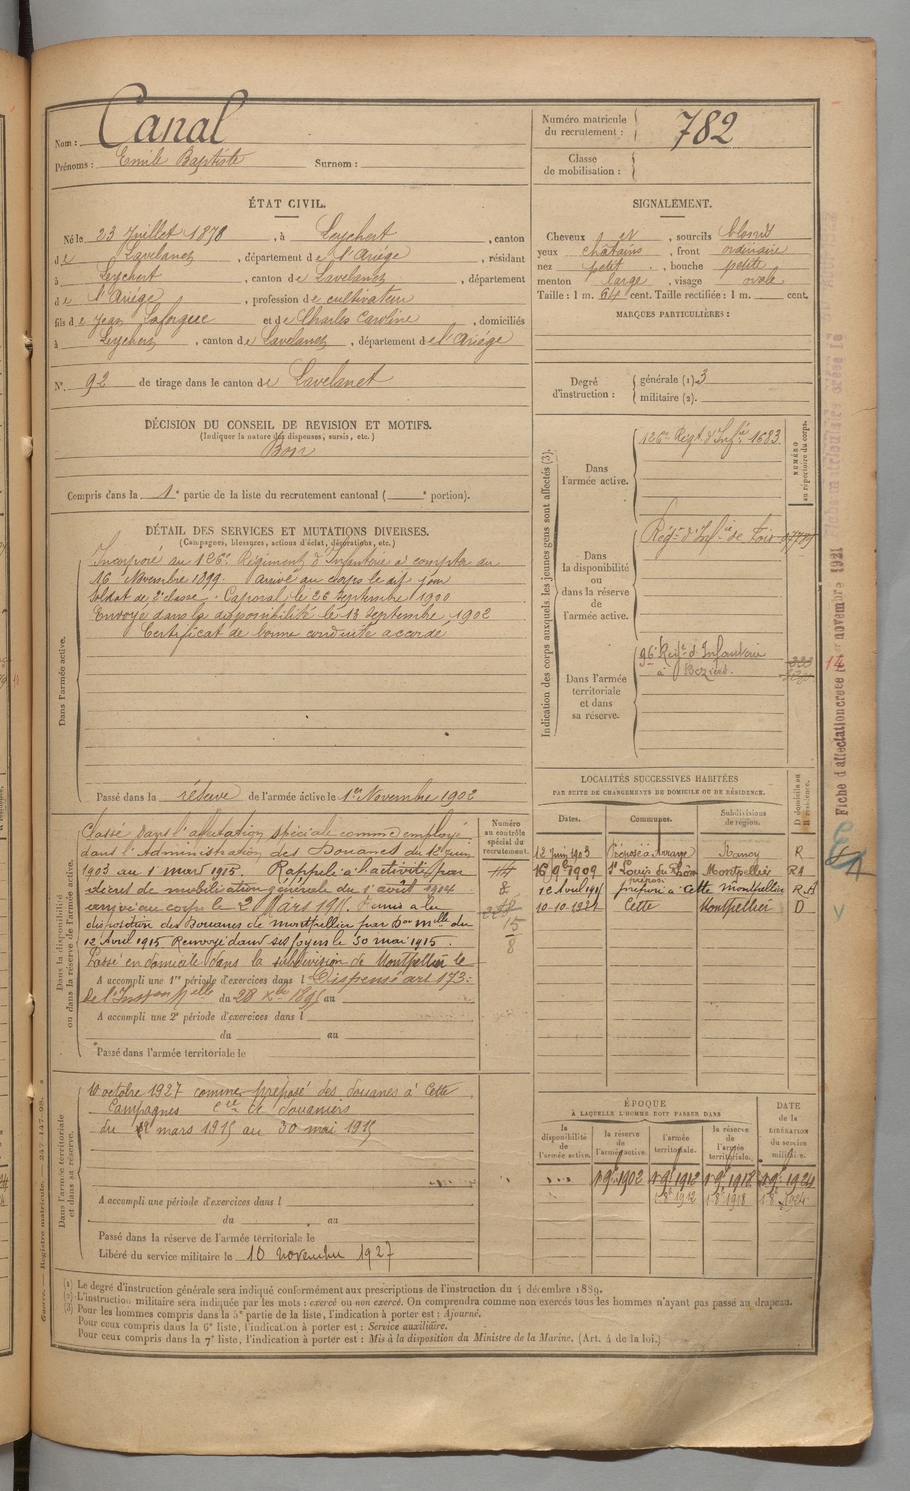 Nom : Canal
Prénoms : Emile Baptiste Surnom :
Numéro matricule du recrutement : 782
Classe de mobilisation :
ÉTAT CIVIL.
Né le 23 Juillet 1878, à Leychert, canton
de Lavelanet, département de l'Ariège, résidant
à Leychert, canton de Lavelanet, département
de l'Ariège, profession de cultivateur
fils de Jean Laforgue et de Charles Caroline, domiciliés
à Leychert, canton de Lavelanet, département de l'Ariège
N° 92 de tirage dans le canton de Lavelanet
SIGNALEMENT.
Cheveux et, sourcils blonds
yeux châtains, front ordinaire
nez petit, bouche petite
menton large, visage ovale
Taille : 1 m. 64 cent. Taille rectifiée : 1 m. cent.
MARQUES PARTICULIÈRES :
Degré d'instruction : générale (1) 3
militaire (2).
DÉCISION DU CONSEIL DE REVISION ET MOTIFS.
(Indiquer la nature des dispenses, sursis, etc.)
Bon
Compris dans la 1e partie de la liste du recrutement cantonal ( e portion).
DÉTAIL DES SERVICES ET MUTATIONS DIVERSES.
(Campagnes, blessures, actions d'éclat, décorations, etc.)
Dans l'armée active.
Incorporé au 126e Régiment d'Infanterie à compter du
16 Novembre 1899. Arrivé au corps le dit jour
Soldat de 2e classe. Caporal le 26 Septembre 1900
Envoyé dans la disponibilité le 13 Septembre 1902
Certificat de bonne conduite accordé
Passé dans la réserve de l'armée active le 1er Novembre 1902
Indication des corps auxquels les jeunes gens sont affectés (3).
NUMÉRO au répertoire du corps.
Dans l'armée active.
126e Régt d'Infie 1683
Dans la disponibilité ou dans la réserve de l'armée active.
Régt d'Infie de Foix
Dans l'armée territoriale et dans sa réserve.
96e Régt d'Infanterie
à Béziers.
Fiche d'affectation créée le 1er novembre 1921
Dans la disponibilité ou dans la réserve de l'armée active.
Numéro au contrôle spécial du recrutement.
Classé dans l'affectation spéciale comme employé
dans l'Administration des Douanes du 12 Juin
1903 au 1 mars 1915. Rappelé à l'activité par
décret de mobilisation générale du 1er août 1914
au corps le 2 Mars 1915. Remis à la
disposition des Douanes de Montpellier par Don mlle du
12 Avril 1915 Renvoyé dans ses foyers le 30 mai 1915.
Passé en domicile dans la subdivision de Montpellier le
A accompli une 1re période d'exercices dans l Dispensé art 173
de l'Instion Mlle du 28 Xbre 1895 au
A accompli une 2e période d'exercices dans l
du au
Passé dans l'armée territoriale le
8
15
8
LOCALITÉS SUCCESSIVES HABITÉES
PAR SUITE DE CHANGEMENTS DE DOMICILE OU DE RÉSIDENCE.
Dates. Communes. Subdivisions de région. D domicile ou R résidence.
12 Juin 1903 Préposé à Nancy R
16 9bre 1909 St Louis du Rhône Montpellier
12 Avril 1915 préposé à Cette Montpellier
10-10-1921 Cette Montpellier D
Dans l'armée territoriale et dans sa réserve.
10 octobre 1927 comme préposé des douanes à Cette
Campagnes Cie de Douaniers
du 2 mars 1915 au 30 mai 1915
A accompli une période d'exercices dans l
du au
Passé dans la réserve de l'armée territoriale le
Libéré du service militaire le 10 novembre 1927
ÉPOQUE
À LAQUELLE L'HOMME DOIT PASSER DANS
la disponibilité de l'armée active. la réserve de l'armée active. l'armée territoriale. la réserve de l'armée territoriale. DATE de la LIBÉRATION du service militaire.
1 9bre 1902 1 9bre 1912 1 9bre 1918 1 9bre 1924
1912 1918 1924
(1) Le degré d'instruction générale sera indiqué conformément aux prescriptions de l'instruction du 4 décembre 1889.
(2) L'instruction militaire sera indiquée par les mots : exercé ou non exercé. On comprendra comme non exercés tous les hommes n'ayant pas passé au drapeau.
(3) Pour les hommes compris dans la 5e partie de la liste, l'indication à porter est : Ajourné.
Pour ceux compris dans la 6e liste, l'indication à porter est : Service auxiliaire.
Pour ceux compris dans la 7e liste, l'indication à porter est : Mis à la disposition du Ministre de la Marine. (Art. 4 de la loi.)